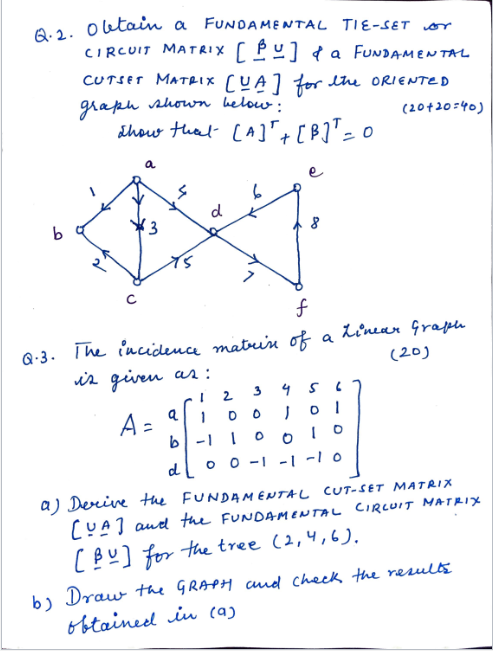 Q.2. Obtain a FUNDAMENTAL TIE-SET or
CIRCUIT MATRIX [B U] & a FUNDAMENTAL
CUTSET MATRIX [U A] for the ORIENTED
graph shown below: (20+20=40)
Show that [A]ᵀ + [B]ᵀ = 0
a
e
1
5
6
d
b
3
8
2
5
7
c
f
Q.3. The incidence matrix of a Linear Graph
is given as: (20)
1 2 3 4 5 6
A = a 1 0 0 1 0 1
b -1 1 0 0 1 0
d 0 0 -1 -1 -1 0
a) Derive the FUNDAMENTAL CUT-SET MATRIX
[U A] and the FUNDAMENTAL CIRCUIT MATRIX
[B U] for the tree (2,4,6).
b) Draw the GRAPH and check the results
obtained in (a)